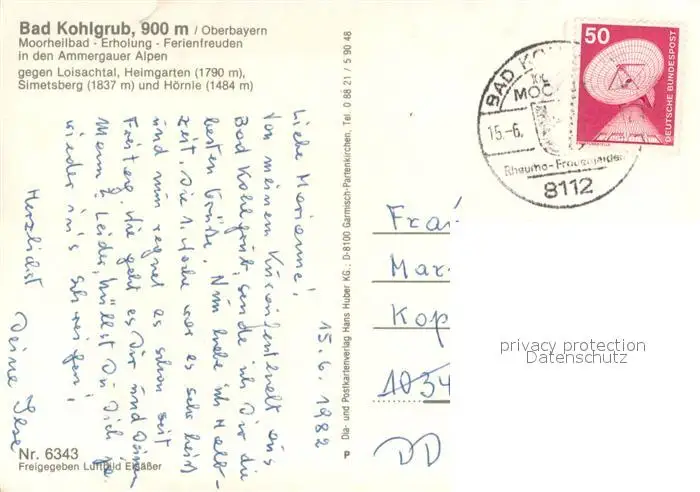 Bad Kohlgrub, 900 m / Oberbayern
Moorheilbad - Erholung - Ferienfreuden
in den Ammergauer Alpen
gegen Loisachtal, Heimgarten (1790 m),
Simetsberg (1837 m) und Hörnle (1484 m)
15.6.1982
Liebe Marianne!
Von meinem Kuraufenthalt aus
Bad Kohlgrub, sende ich Dir die
besten Grüße. Nun habe ich Halb-
zeit. Die 1. Woche war es sehr heiß
und nun regnet es schon seit
Freitag. Wie geht es Dir und Deinem
Mann? Leider hüllst Du Dich ja
wieder in's Schweigen!
Herzlichst
Deine Ilse
Nr. 6343
Freigegeben Luftbild Elsäßer
Dia- und Postkartenverlag Hans Huber KG., D-8100 Garmisch-Partenkirchen, Tel. 0 88 21 / 5 90 48
P
50
DEUTSCHE BUNDESPOST
BAD KO
MOO
15.-6.
Rheuma-Frauenleiden
8112
Frau
Mar
Kop
1034
DD
privacy protection
Datenschutz